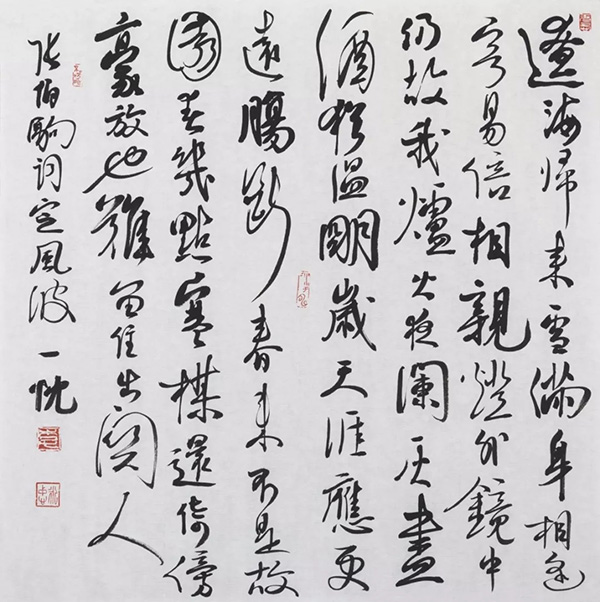 遼海歸来雪滿身相逢
容易倍相親燈外鏡中
仍故我爐火夜闌灰盡
酒猶溫明歲天涯應更
遠腸斷春来不是故
園春幾點寒梅還倚傍
豪放也難留住出關人
張伯駒詞定風波一忱